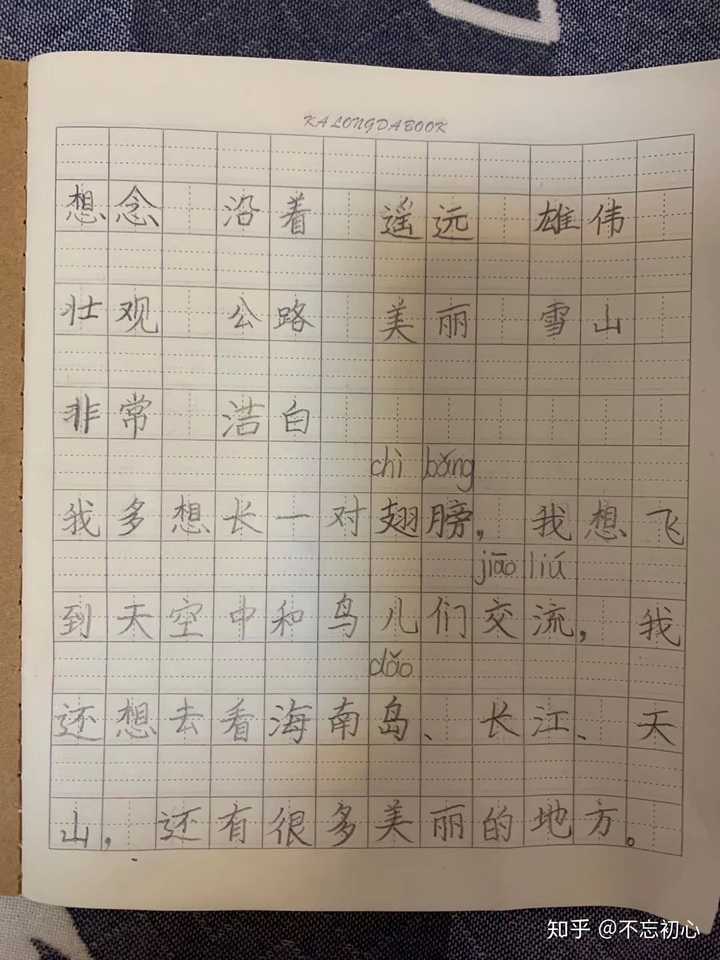 KALONGDABOOK
想念 沿着 遥远 雄伟
壮观 公路 美丽 雪山
非常 洁白
chì bǎng
我多想长一对翅膀，我想飞
jiāo liú
到天空中和鸟儿们交流，我
dǎo
还想去看海南岛、长江、天
山，还有很多美丽的地方。
知乎 @不忘初心